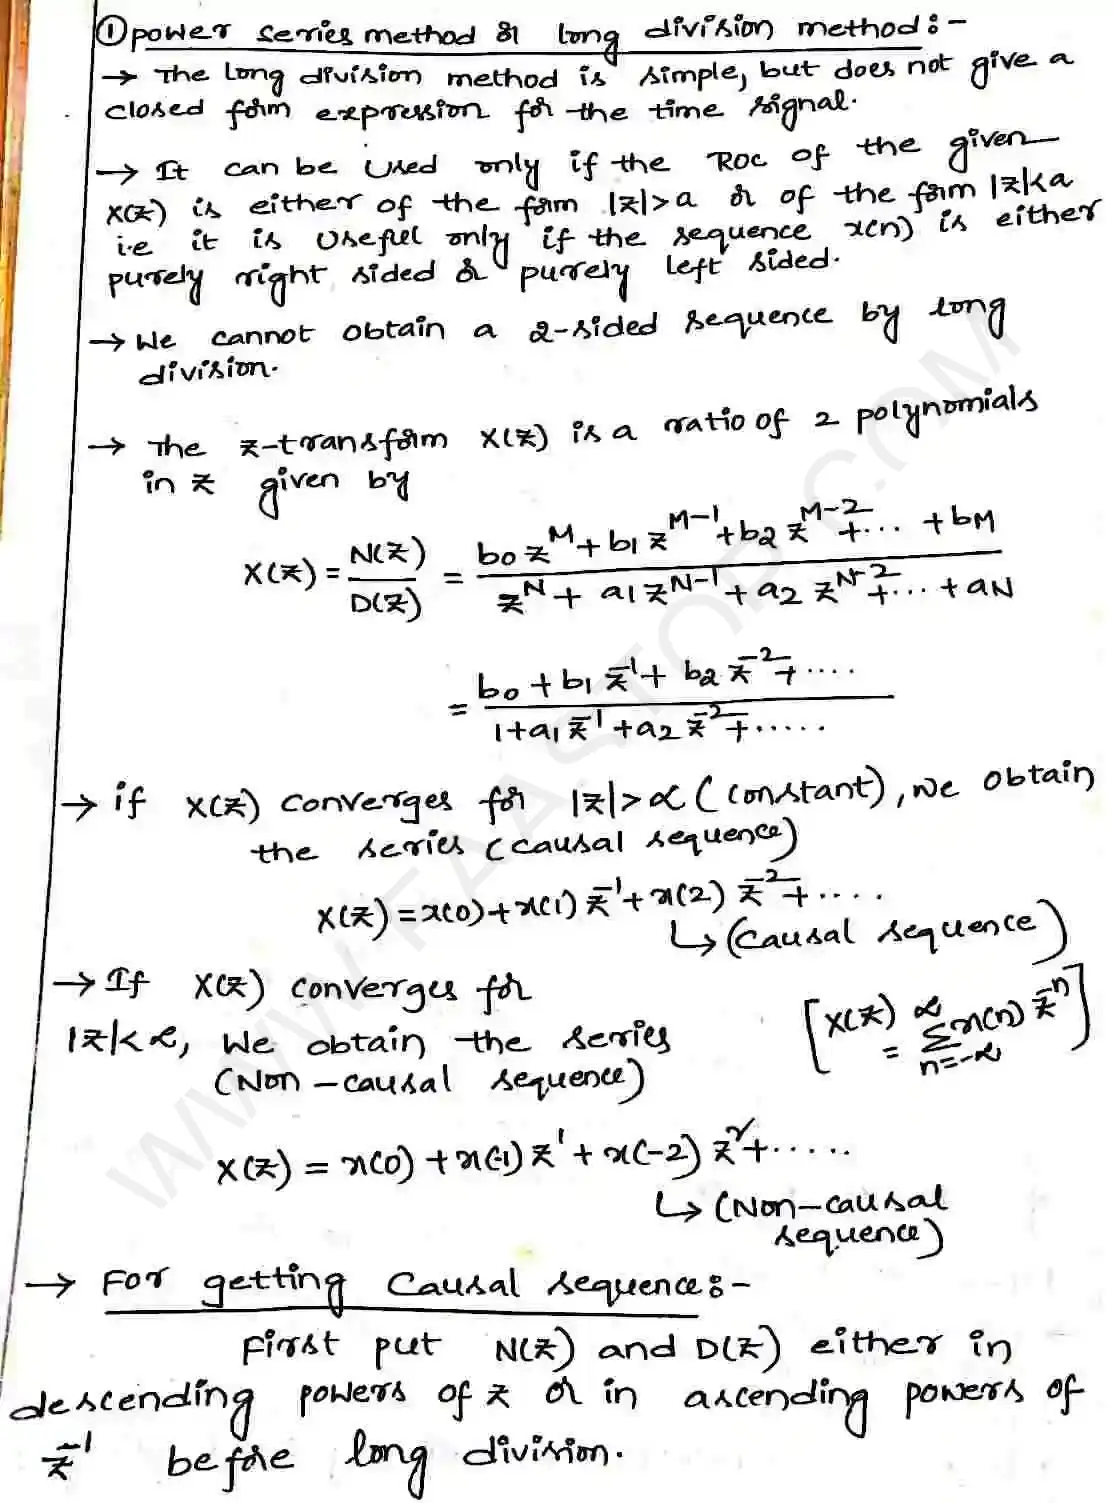 ① power series method or long division method :-
→ The long division method is simple, but does not give a
closed form expression for the time signal.
→ It can be used only if the ROC of the given
X(z) is either of the form |z|>a or of the form |z|<a
i.e it is useful only if the sequence x(n) is either
purely right sided or purely left sided.
→ We cannot obtain a 2-sided sequence by long
division.
→ The z-transform X(z) is a ratio of 2 polynomials
in z given by
X(z) = N(z)/D(z) = (b0 z^M + b1 z^(M-1) + b2 z^(M-2) + ... + bM)/(z^N + a1 z^(N-1) + a2 z^(N-2) + ... + aN)
= (b0 + b1 z^-1 + b2 z^-2 + ....)/(1 + a1 z^-1 + a2 z^-2 + .....)
→ if X(z) converges for |z|>α (constant), we obtain
the series (causal sequence)
X(z) = x(0) + x(1) z^-1 + x(2) z^-2 + ....
↳ (causal sequence)
→ If X(z) converges for
|z|<α, We obtain the series
(Non-causal sequence)
[X(z) = ∑_{n=-∞}^{∞} x(n) z^-n]
X(z) = x(0) + x(-1) z^1 + x(-2) z^2 + .....
↳ (Non-causal
sequence)
→ For getting causal sequence :-
First put N(z) and D(z) either in
descending powers of z or in ascending powers of
z^-1 before long division.
WWW.FAASTOP.COM